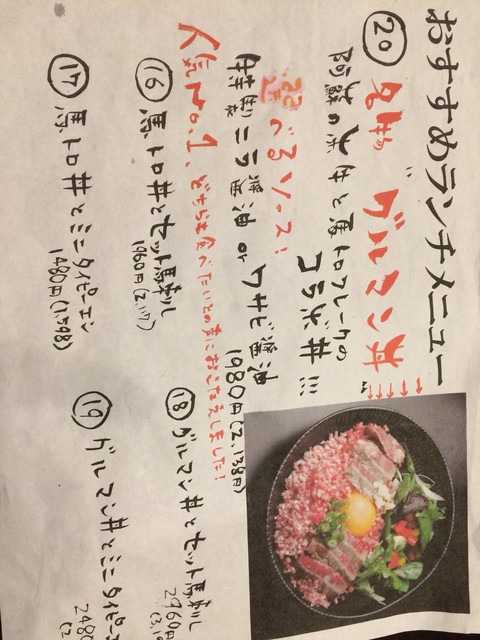 おすすめランチメニュー
⑳ 名物 グルマン丼
阿蘇の赤牛と馬トロフレークの
コラボ丼!!!
選べるソース!
特製ニラ醤油 or ワサビ醤油
1980円(2,138円)
人気No.1、どちらも食べたいとの声におこたえしました!
⑯ 馬トロ丼とセット馬刺し
1960円(2,117)
⑰ 馬トロ丼とミニタイピーエン
1480円(1,598)
⑱ グルマン丼とセット馬刺し
2960円
⑲ グルマン丼とミニタイピーエ
248